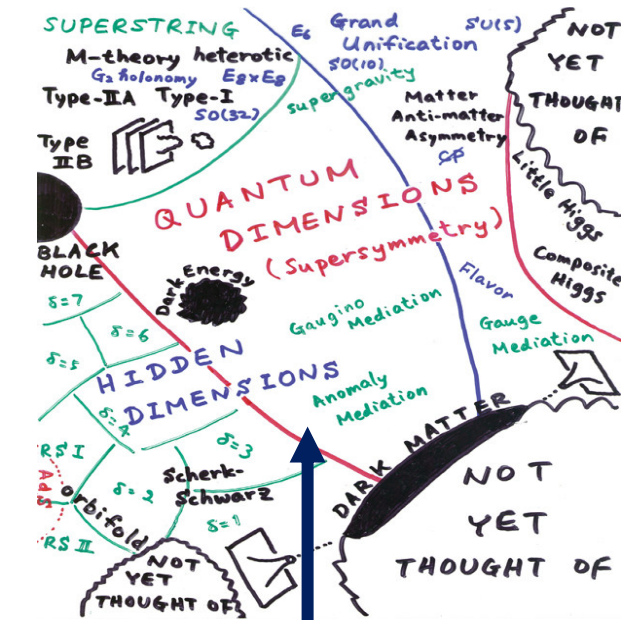 SUPERSTRING
M-theory heterotic
G₂ holonomy E₈×E₈
Type-IIA Type-I
SO(32)
Type
IIB
E₆
Grand
Unification
SU(5)
SO(10)
supergravity
Matter
Anti-matter
Asymmetry
CP
NOT
YET
THOUGHT
OF
Little Higgs
Composite
Higgs
QUANTUM
DIMENSIONS
(Supersymmetry)
BLACK
HOLE
Dark Energy
Gaugino
Mediation
Flavor
Gauge
Mediation
Anomaly
Mediation
δ=7
δ=6
δ=5
HIDDEN
DIMENSIONS
δ=4
δ=3
RS I
AdS
RS II
orbifold
δ=2
Scherk-
Schwarz
δ=1
DARK MATTER
NOT
YET
THOUGHT OF
NOT
YET
THOUGHT OF